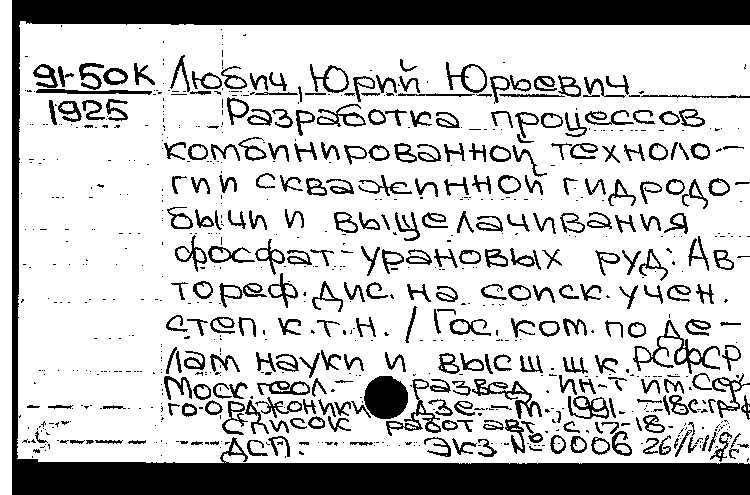 91-50К Любич, Юрий Юрьевич.
1925 Разработка процессов
комбинированной техноло-
гии скважинной гидродо-
бычи и выщелачивания
фосфат-урановых руд: Ав-
тореф. дис. на соиск. учен.
степ. к.т.н. / Гос. ком. по де-
лам науки и высш. шк. РСФСР
Моск геол.- развед. ин-т им. Сер-
го Орджоникидзе.- М., 1991. -18с: граф
Список работ авт. с. 17-18.
ДСП. Экз №0006